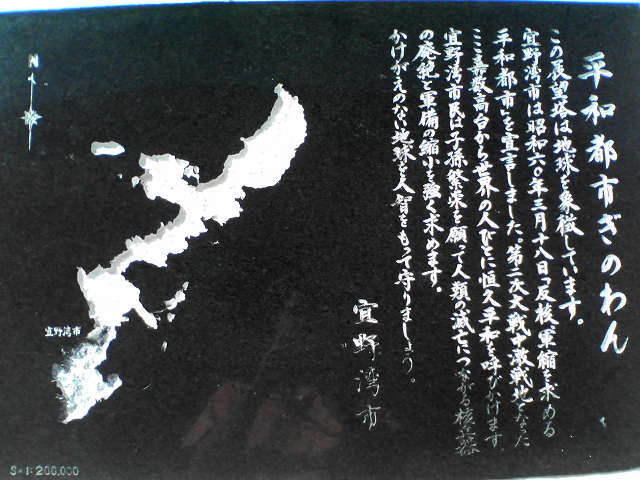 平和都市ぎのわん
この展望塔は地球を象徴しています。
宜野湾市は昭和六〇年三月十八日「反核、軍縮を求める
平和都市」を宣言しました。第二次大戦中激戦地となった
ここ嘉数高台から世界の人びとに恒久平和を呼びかけます。
宜野湾市民は子孫繁栄を願って人類の滅亡につながる核兵器
の廃絶と軍備の縮小を強く求めます。
かけがえのない地球を人智をもって守りましょう。
宜野湾市
N
宜野湾市
S=1:200,000